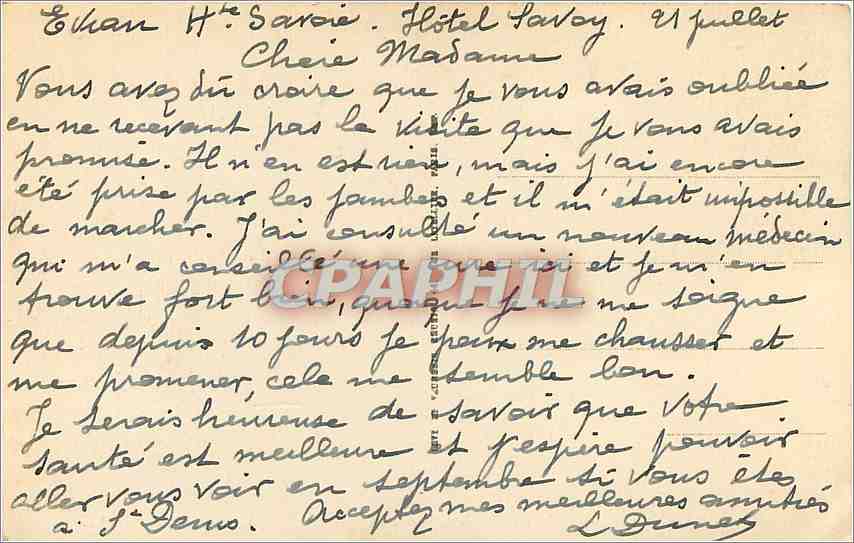 Evian Hte Savoie. Hôtel Savoy. 21 juillet
Chère Madame
Vous avez dû croire que je vous avais oubliée
en ne recevant pas la visite que je vous avais
promise. Il n'en est rien, mais j'ai encore
été prise par les jambes et il m'était impossible
de marcher. J'ai consulté un nouveau médecin
qui m'a conseillé une cure ici et je m'en
trouve fort bien, quoique je ne me soigne
que depuis 10 jours je peux me chausser et
me promener, cela me semble bon.
Je serais heureuse de savoir que votre
santé est meilleure et j'espère pouvoir
aller vous voir en septembre si vous êtes
à St Denis. Acceptez mes meilleures amitiés
CPAPHIL